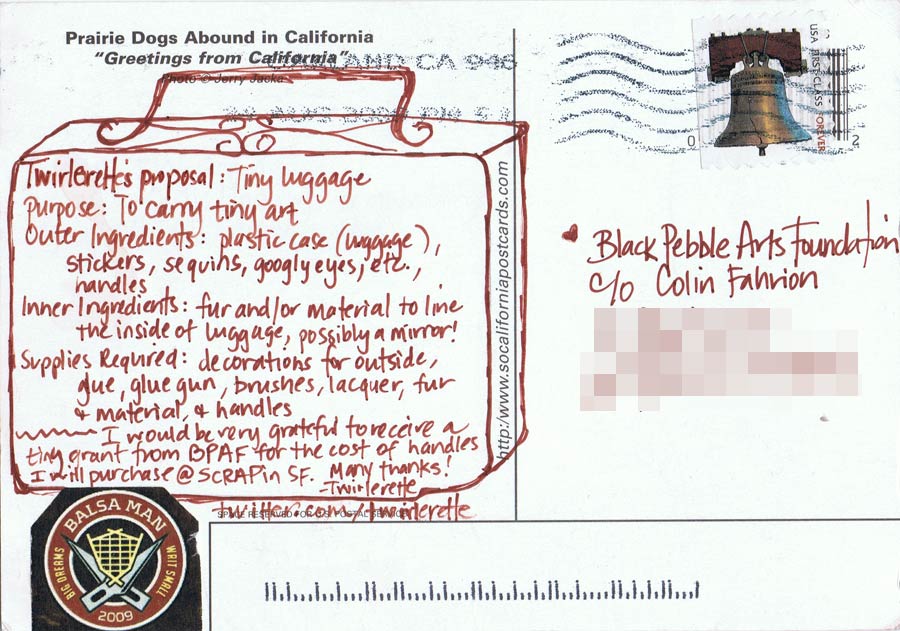 Prairie Dogs Abound in California
"Greetings from California"
Photo © Jerry Jacka
AND CA 946
Twirlerette's proposal: Tiny luggage
Purpose: To carry tiny art
Outer Ingredients: plastic case (luggage),
stickers, sequins, googly eyes, etc.,
handles
Inner Ingredients: fur and/or material to line
the inside of luggage, possibly a mirror!
Supplies Required: decorations for outside,
glue, glue gun, brushes, lacquer, fur
& material, & handles
I would be very grateful to receive a
tiny grant from BPAF for the cost of handles
I will purchase @ SCRAP in SF. Many thanks!
-Twirlerette
twitter.com/twirlerette
SPACE RESERVED FOR U.S. POSTAL SERVICE
http://www.socaliforniapostcards.com
USA FIRST-CLASS FOREVER
Black Pebble Arts Foundation
c/o Colin Fahrion
BALSA MAN
BIG DREAMS
WRIT SMALL
2009